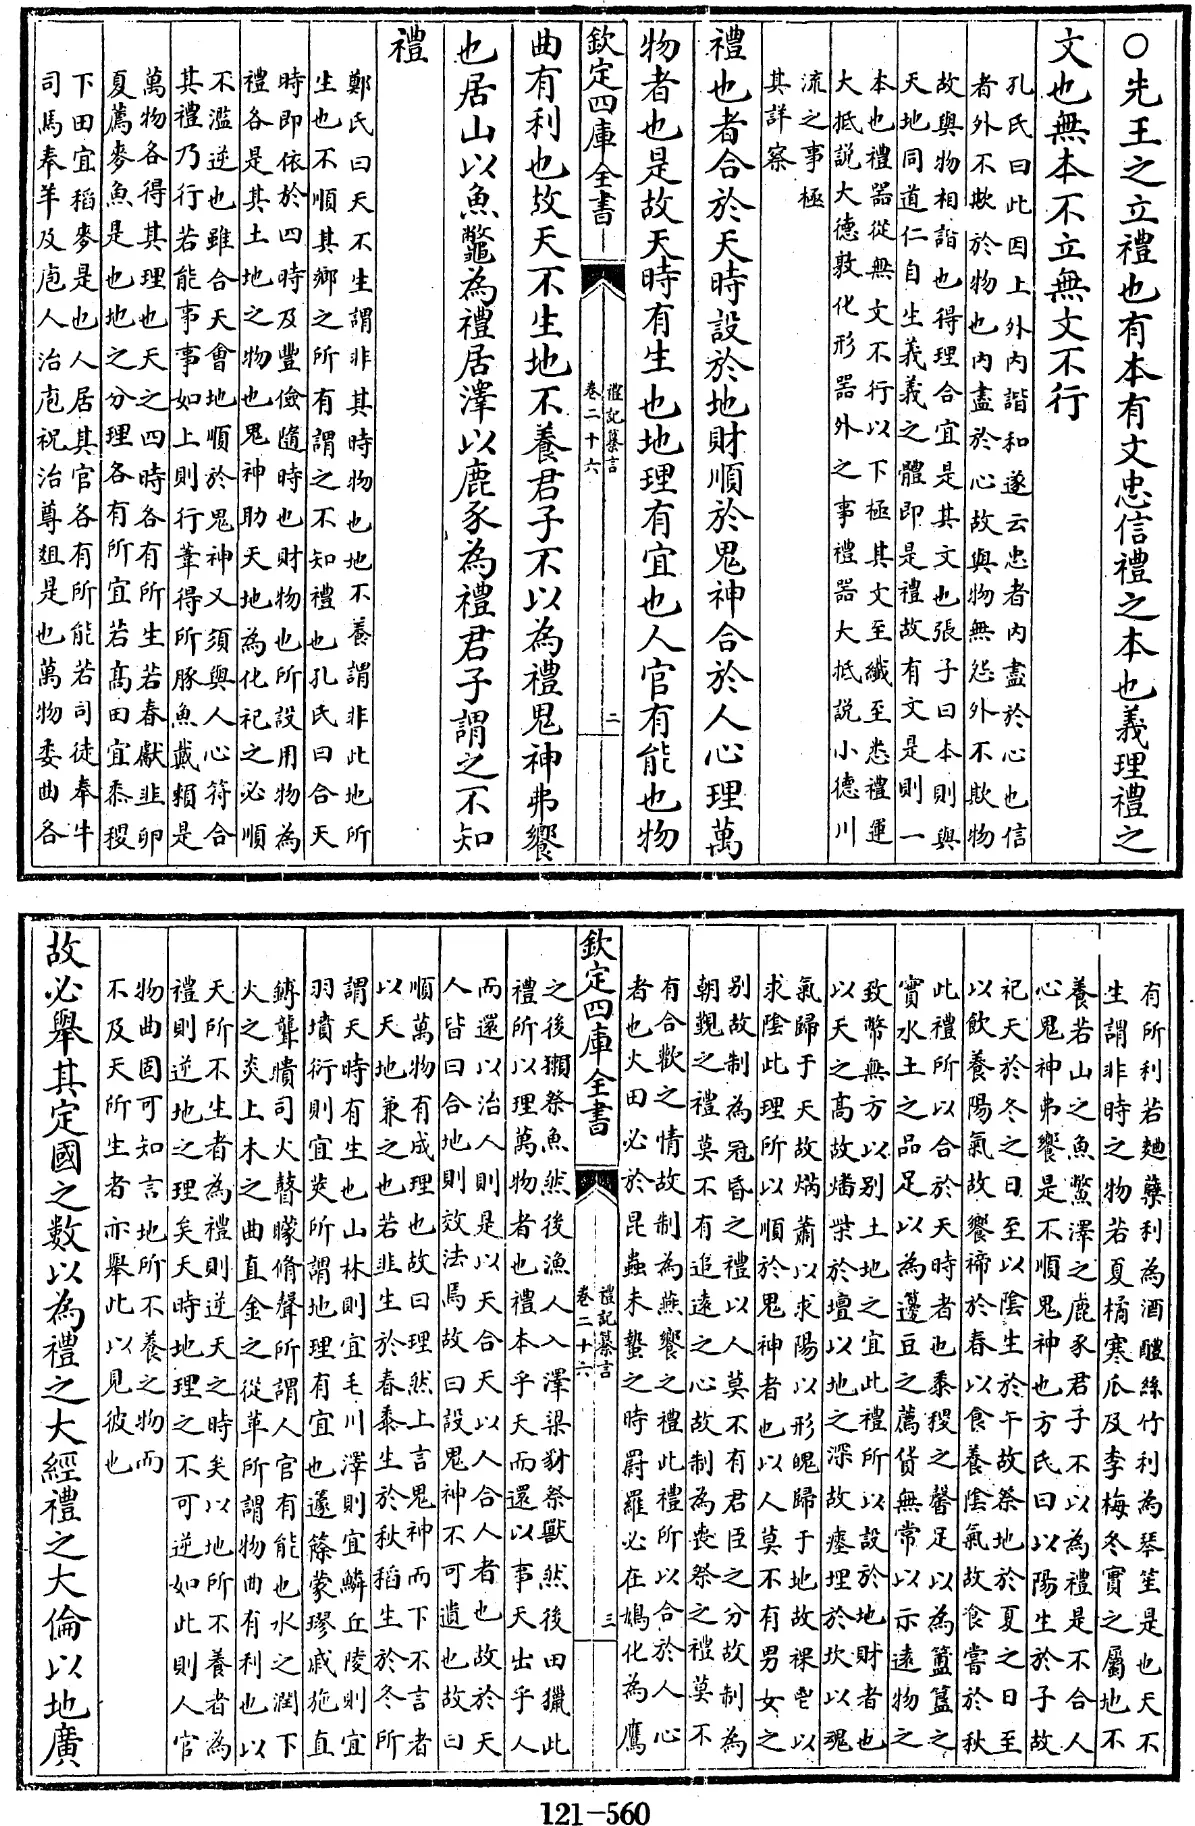 ○先王之立禮也有本有文忠信禮之本也義理禮之
文也無本不立無文不行
孔氏曰此因上外内諧和遂云忠者内盡於心也信
者外不欺於物也内盡於心故與物無怨外不欺物
故與物相諧也得理合宜是其文也張子曰本則與
天地同道仁自生義義之體即是禮故有文是則一
本也禮器從無文不行以下極其文至纖至悉禮運
大抵説大德敦化形器外之事禮器大抵説小德川
流之事極
其詳察
禮也者合於天時設於地財順於鬼神合於人心理萬
物者也是故天時有生也地理有宜也人官有能也物
欽定四庫全書
禮記纂言
卷二十六
二
曲有利也故天不生地不養君子不以為禮鬼神弗饗
也居山以魚鼈為禮居澤以鹿豕為禮君子謂之不知
禮
鄭氏曰天不生謂非其時物也地不養謂非此地所
生也不順其鄉之所有謂之不知禮也孔氏曰合天
時即依於四時及豐儉隨時也財物也所設用物為
禮各是其土地之物也鬼神助天地為化祀之必順
不濫逆也雖合天會地順於鬼神又須與人心符合
其禮乃行若能事事如上則行葦得所豚魚戴賴是
萬物各得其理也天之四時各有所生若春獻韭卵
夏薦麥魚是也地之分理各有所宜若高田宜黍稷
下田宜稻麥是也人居其官各有所能若司徒奉牛
司馬奉羊及庖人治庖祝治尊俎是也萬物委曲各
有所利若麯糵利為酒醴絲竹利為琴笙是也天不
生謂非時之物若夏橘寒瓜及李梅冬實之屬地不
養若山之魚鱉澤之鹿豕君子不以為禮是不合人
心鬼神弗饗是不順鬼神也方氏曰以陽生於子故
祀天於冬之日至以陰生於午故祭地於夏之日至
以飲養陽氣故饗禘於春以食養陰氣故食嘗於秋
此禮所以合於天時者也黍稷之馨足以為簠簋之
實水土之品足以為籩豆之薦貨無常以示遠物之
致幣無方以别土地之宜此禮所以設於地財者也
以天之高故燔柴於壇以地之深故瘞埋於坎以魂
氣歸于天故焫蕭以求陽以形魄歸于地故祼鬯以
求陰此理所以順於鬼神者也以人莫不有男女之
别故制為冠昏之禮以人莫不有君臣之分故制為
朝覲之禮莫不有追逺之心故制為喪祭之禮莫不
有合歡之情故制為燕饗之禮此禮所以合於人心
者也火田必於昆蟲未蟄之時罻羅必在鳩化為鷹
欽定四庫全書
禮記纂言
卷二十六
三
之後獺祭魚然後漁人入澤梁豺祭獸然後田獵此
禮所以理萬物者也禮本乎天而還以事天出乎人
而還以治人則是以天合天以人合人者也故於天
人皆曰合地則效法焉故曰設鬼神不可遺也故曰
順萬物有成理也故曰理然上言鬼神而下不言者
以天地兼之也若韭生於春黍生於秋稻生於冬所
謂天時有生也山林則宜毛川澤則宜鱗丘陵則宜
羽墳衍則宜莢所謂地理有宜也蘧篨蒙璆戚施直
鎛聾聵司火瞽矇脩聲所謂人官有能也水之潤下
火之炎上木之曲直金之從革所謂物曲有利也以
天所不生者為禮則逆天之時矣以地所不養者為
禮則逆地之理矣天時地理之不可逆如此則人官
物曲固可知言地所不養之物而
不及天所生者亦舉此以見彼也
故必舉其定國之數以為禮之大經禮之大倫以地廣
121-560